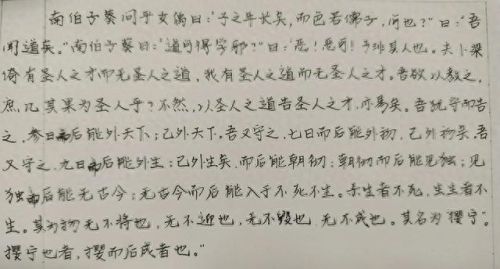 南伯子葵问乎女偊曰：“子之年长矣，而色若孺子，何也？”曰：“吾
闻道矣。”南伯子葵曰：“道可得学邪？”曰：“恶！恶可！子非其人也。夫卜梁
倚有圣人之才而无圣人之道，我有圣人之道而无圣人之才。吾欲以教之，
庶几其果为圣人乎？不然，以圣人之道告圣人之才，亦易矣。吾犹守而告
之，参日而后能外天下；已外天下，吾又守之，七日而后能外物；已外物矣，吾
又守之，九日而后能外生；已外生矣，而后能朝彻；朝彻而后能见独；见
独而后能无古今；无古今而后能入于不死不生。杀生者不死，生生者不
生。其为物无不将也，无不迎也，无不毁也，无不成也。其名为“撄宁”。
撄宁也者，撄而后成者也。”